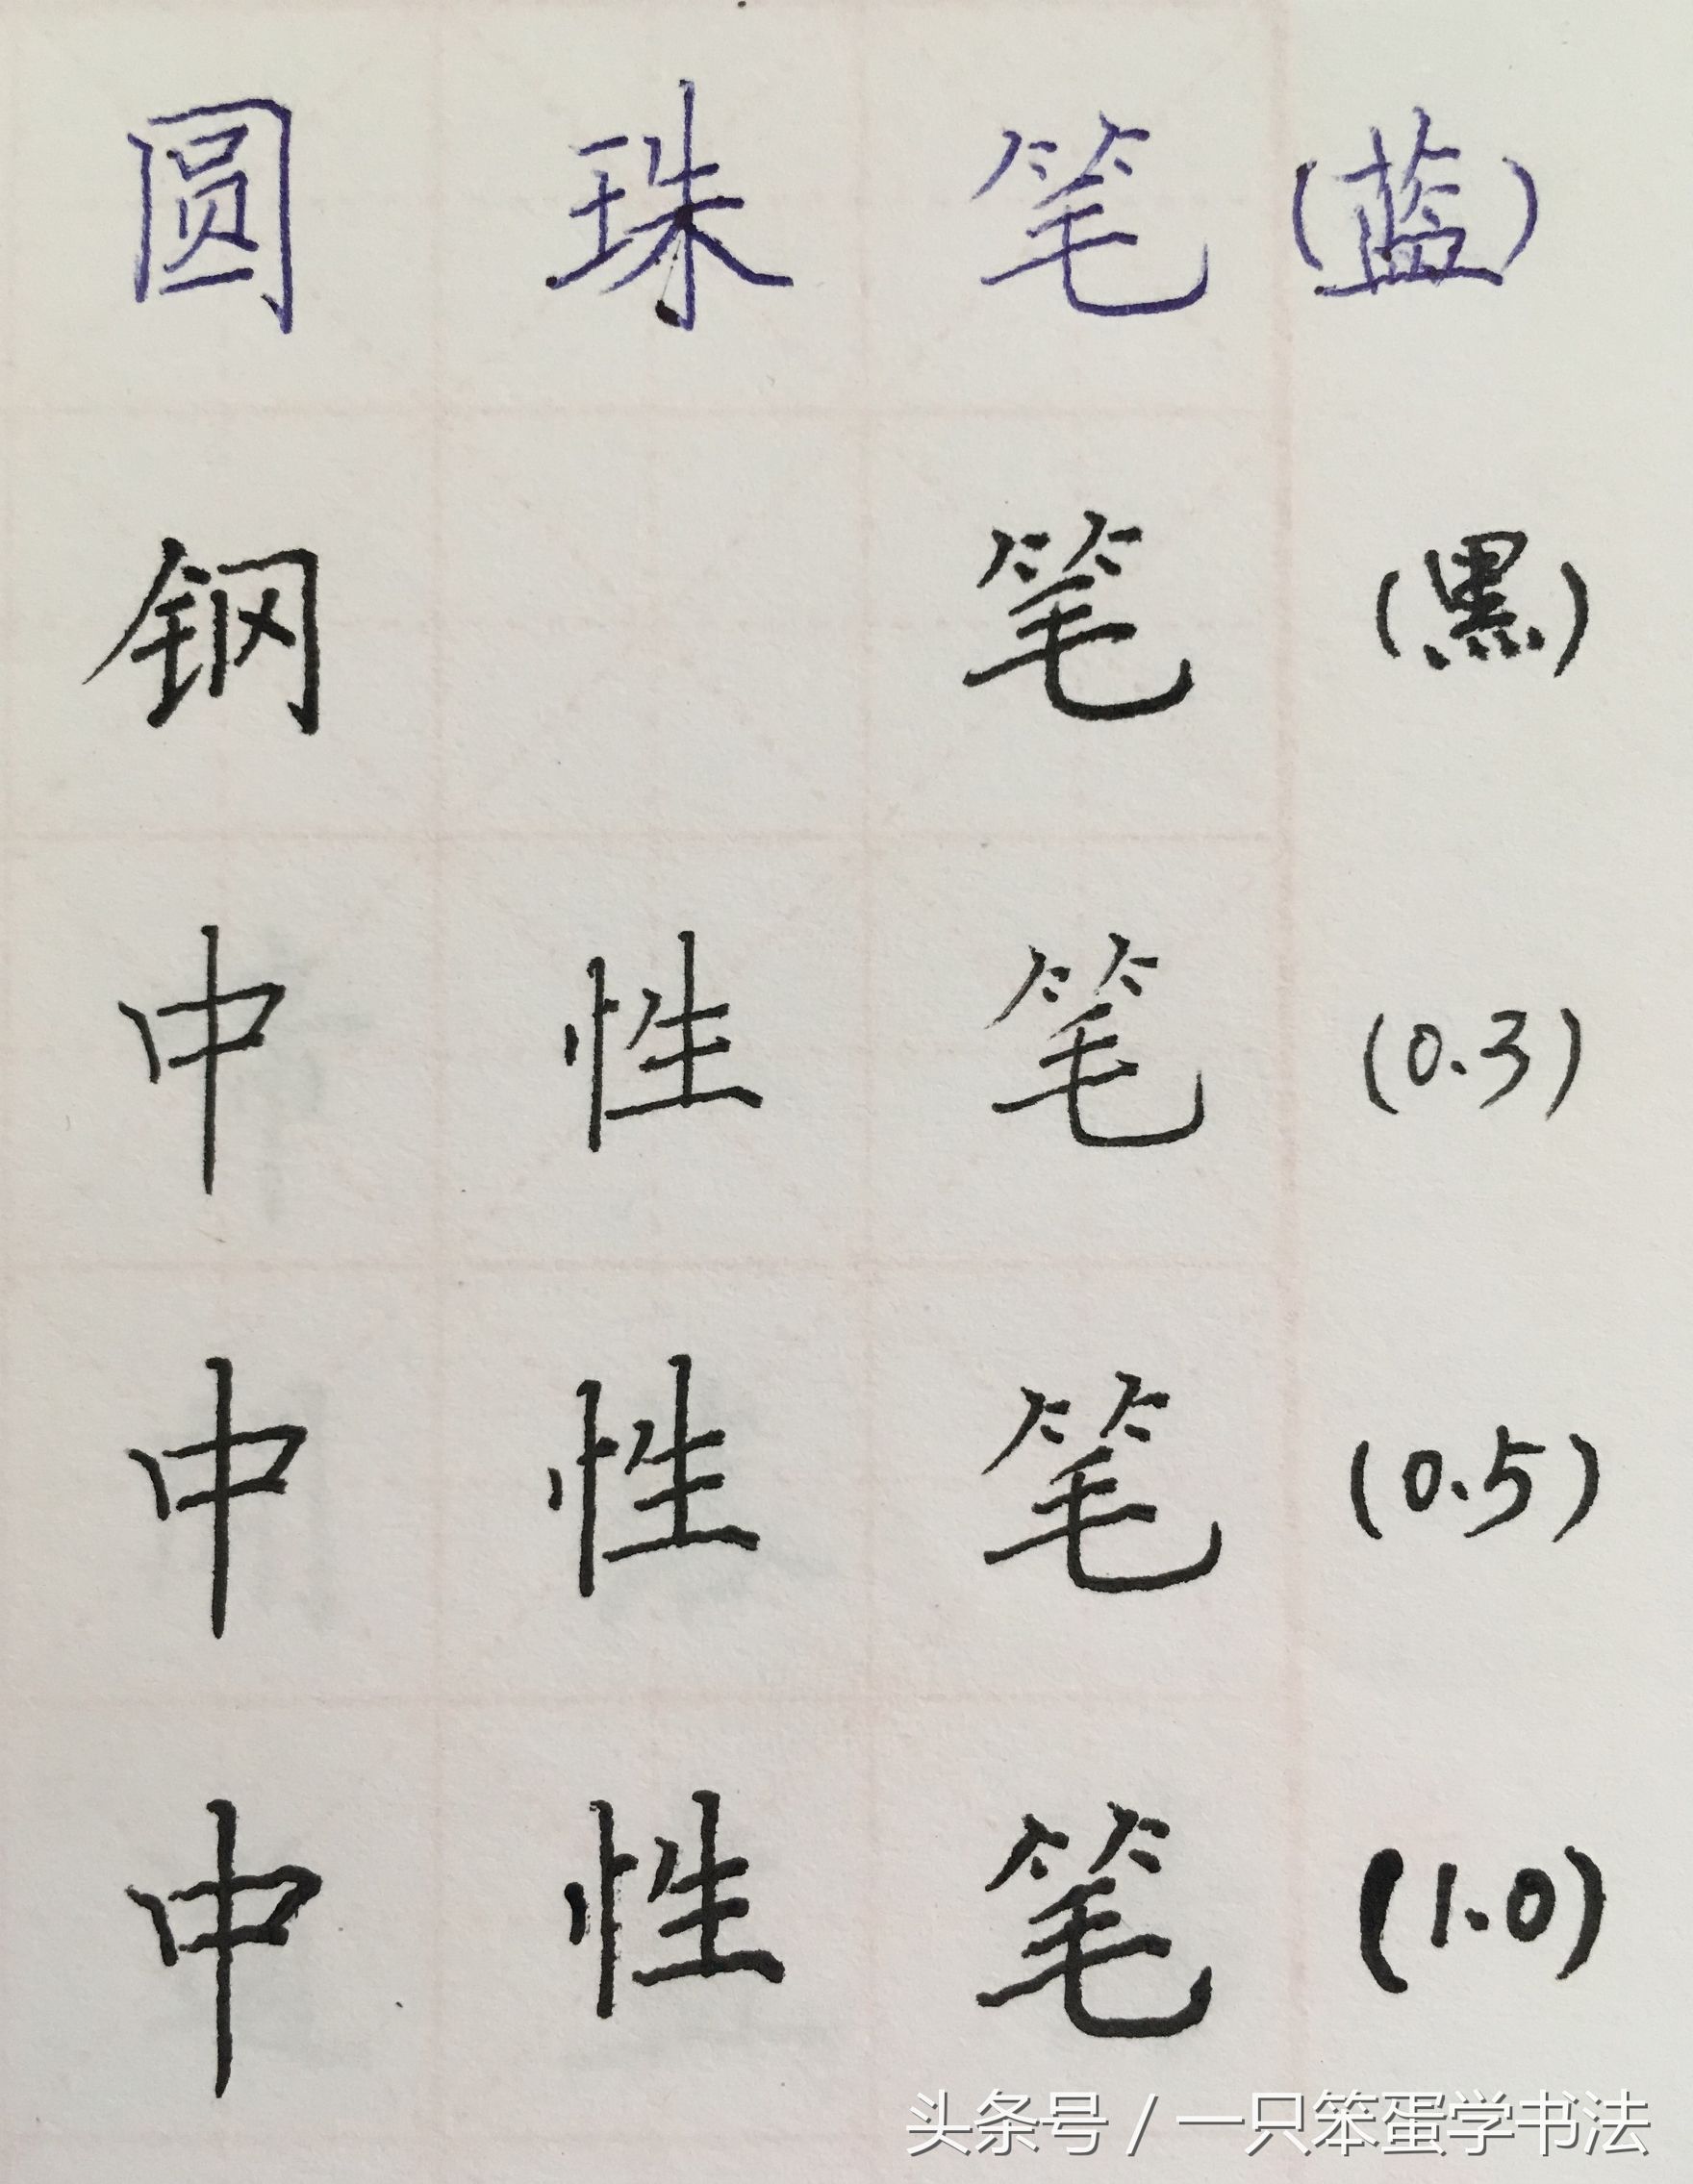 圆珠笔(蓝)
钢笔(黑)
中性笔(0.3)
中性笔(0.5)
中性笔(1.0)
头条号 / 一只笨蛋学书法